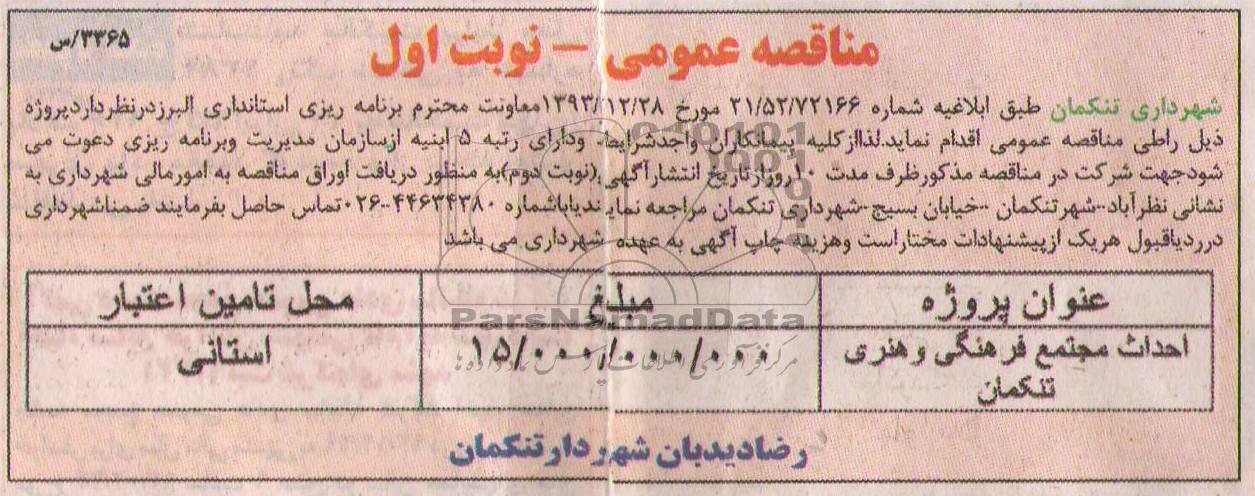 ۳۳۶۵/س
مناقصه عمومی - نوبت اول
شهرداری تنکمان طبق ابلاغیه شماره ۲۱/۵۲/۷۲۱۶۶ مورخ ۱۳۹۳/۱۲/۲۸معاونت محترم برنامه ریزی استانداری البرزدرنظرداردپروژه
ذیل راطی مناقصه عمومی اقدام نماید.لذاازکلیه پیمانکاران واجدشرایط ودارای رتبه ۵ ابنیه ازسازمان مدیریت وبرنامه ریزی دعوت می
شودجهت شرکت در مناقصه مذکورظرف مدت ۱۰روزازتاریخ انتشارآگهی(نوبت دوم)به منظور دریافت اوراق مناقصه به امورمالی شهرداری به
نشانی نظرآباد-شهرتنکمان -خیابان بسیج-شهرداری تنکمان مراجعه نمایندیاباشماره ۴۴۶۳۴۳۸۰-۰۲۶تماس حاصل بفرمایند ضمناشهرداری
درردیاقبول هریک ازپیشنهادات مختاراست وهزینه چاپ آگهی به عهده شهرداری می باشد
عنوان پروژه مبلغ محل تامین اعتبار
احداث مجتمع فرهنگی وهنری ۱۵/۰۰۰/۰۰۰/۰۰۰ استانی
تنکمان
ParsNamadData
رضادیدبان شهردارتنکمان